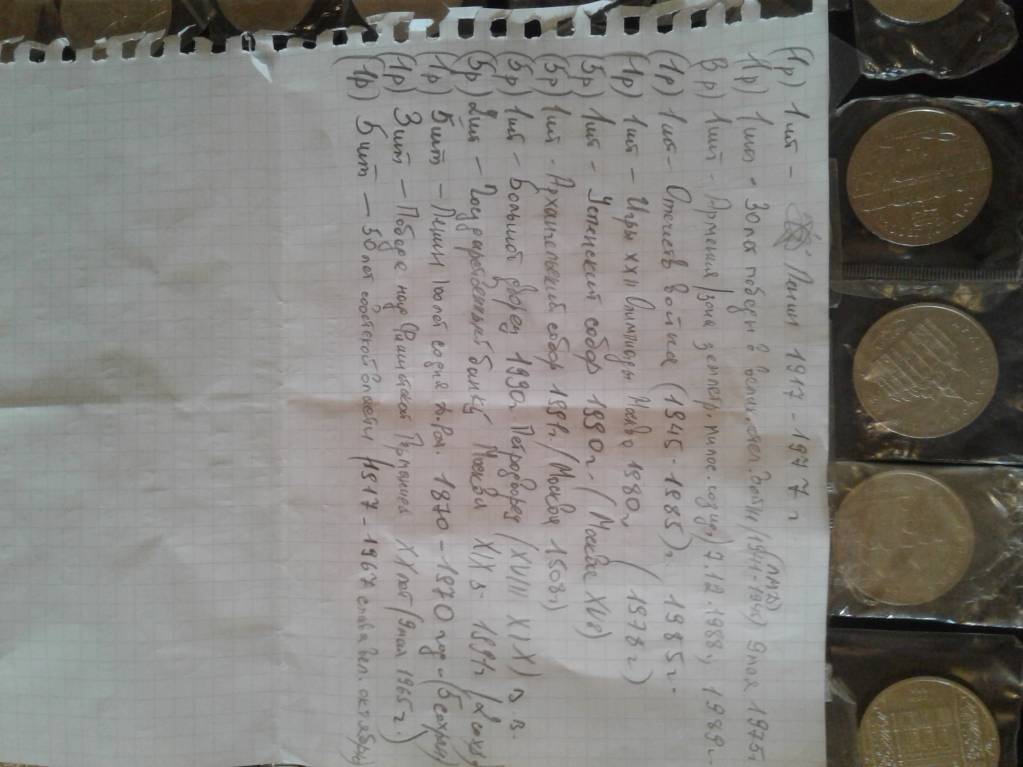 (1р) 1 шт - Ленин 1917 - 1977 г
(1р) 1 шт - 30 лет победы в велик. отеч. войны (1941-1945) 9 мая 1975г
(ЛМД)
(3р) 1 шт - Армения 7.12.1988г, 1989г
(1р) 1 шт - Отечеств война (1945-1985)г. 1985г.
(1р) 1 шт - Игры XXII Олимпиады Москва 1980г (1978г)
(5р) 1 шт - Успенский собор 1990г. (Москва XVв)
(5р) 1 шт - Архангельский собор 1991г/Москва 1508г)
(5р) 1 шт - Большой дворец 1990г. Петродворец (XVIII XIX) в в.
(5р) 2 шт - Государственный банк Москва XIX в. 1991г (2
(1р) 5 шт - Ленин 100 лет со дня 1870 - 1970 год - (5
(1р) 3 шт - Победа над Фашистской Германией XX лет (9 мая 1965г.)
(1р) 5 шт - 50 лет советской власти (1917 - 1967 слава вел. октябрю)